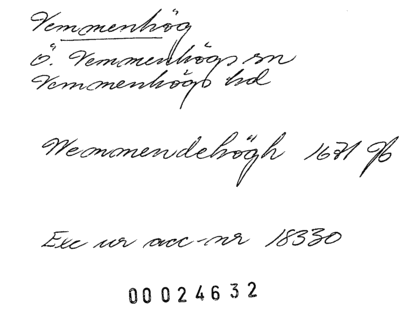 Vemmenhög
Ö. Vemmenhögs sn
Vemmenhögs hd
Wemmendehögh 1671 jb
Exc ur acc-nr 18330
00024632